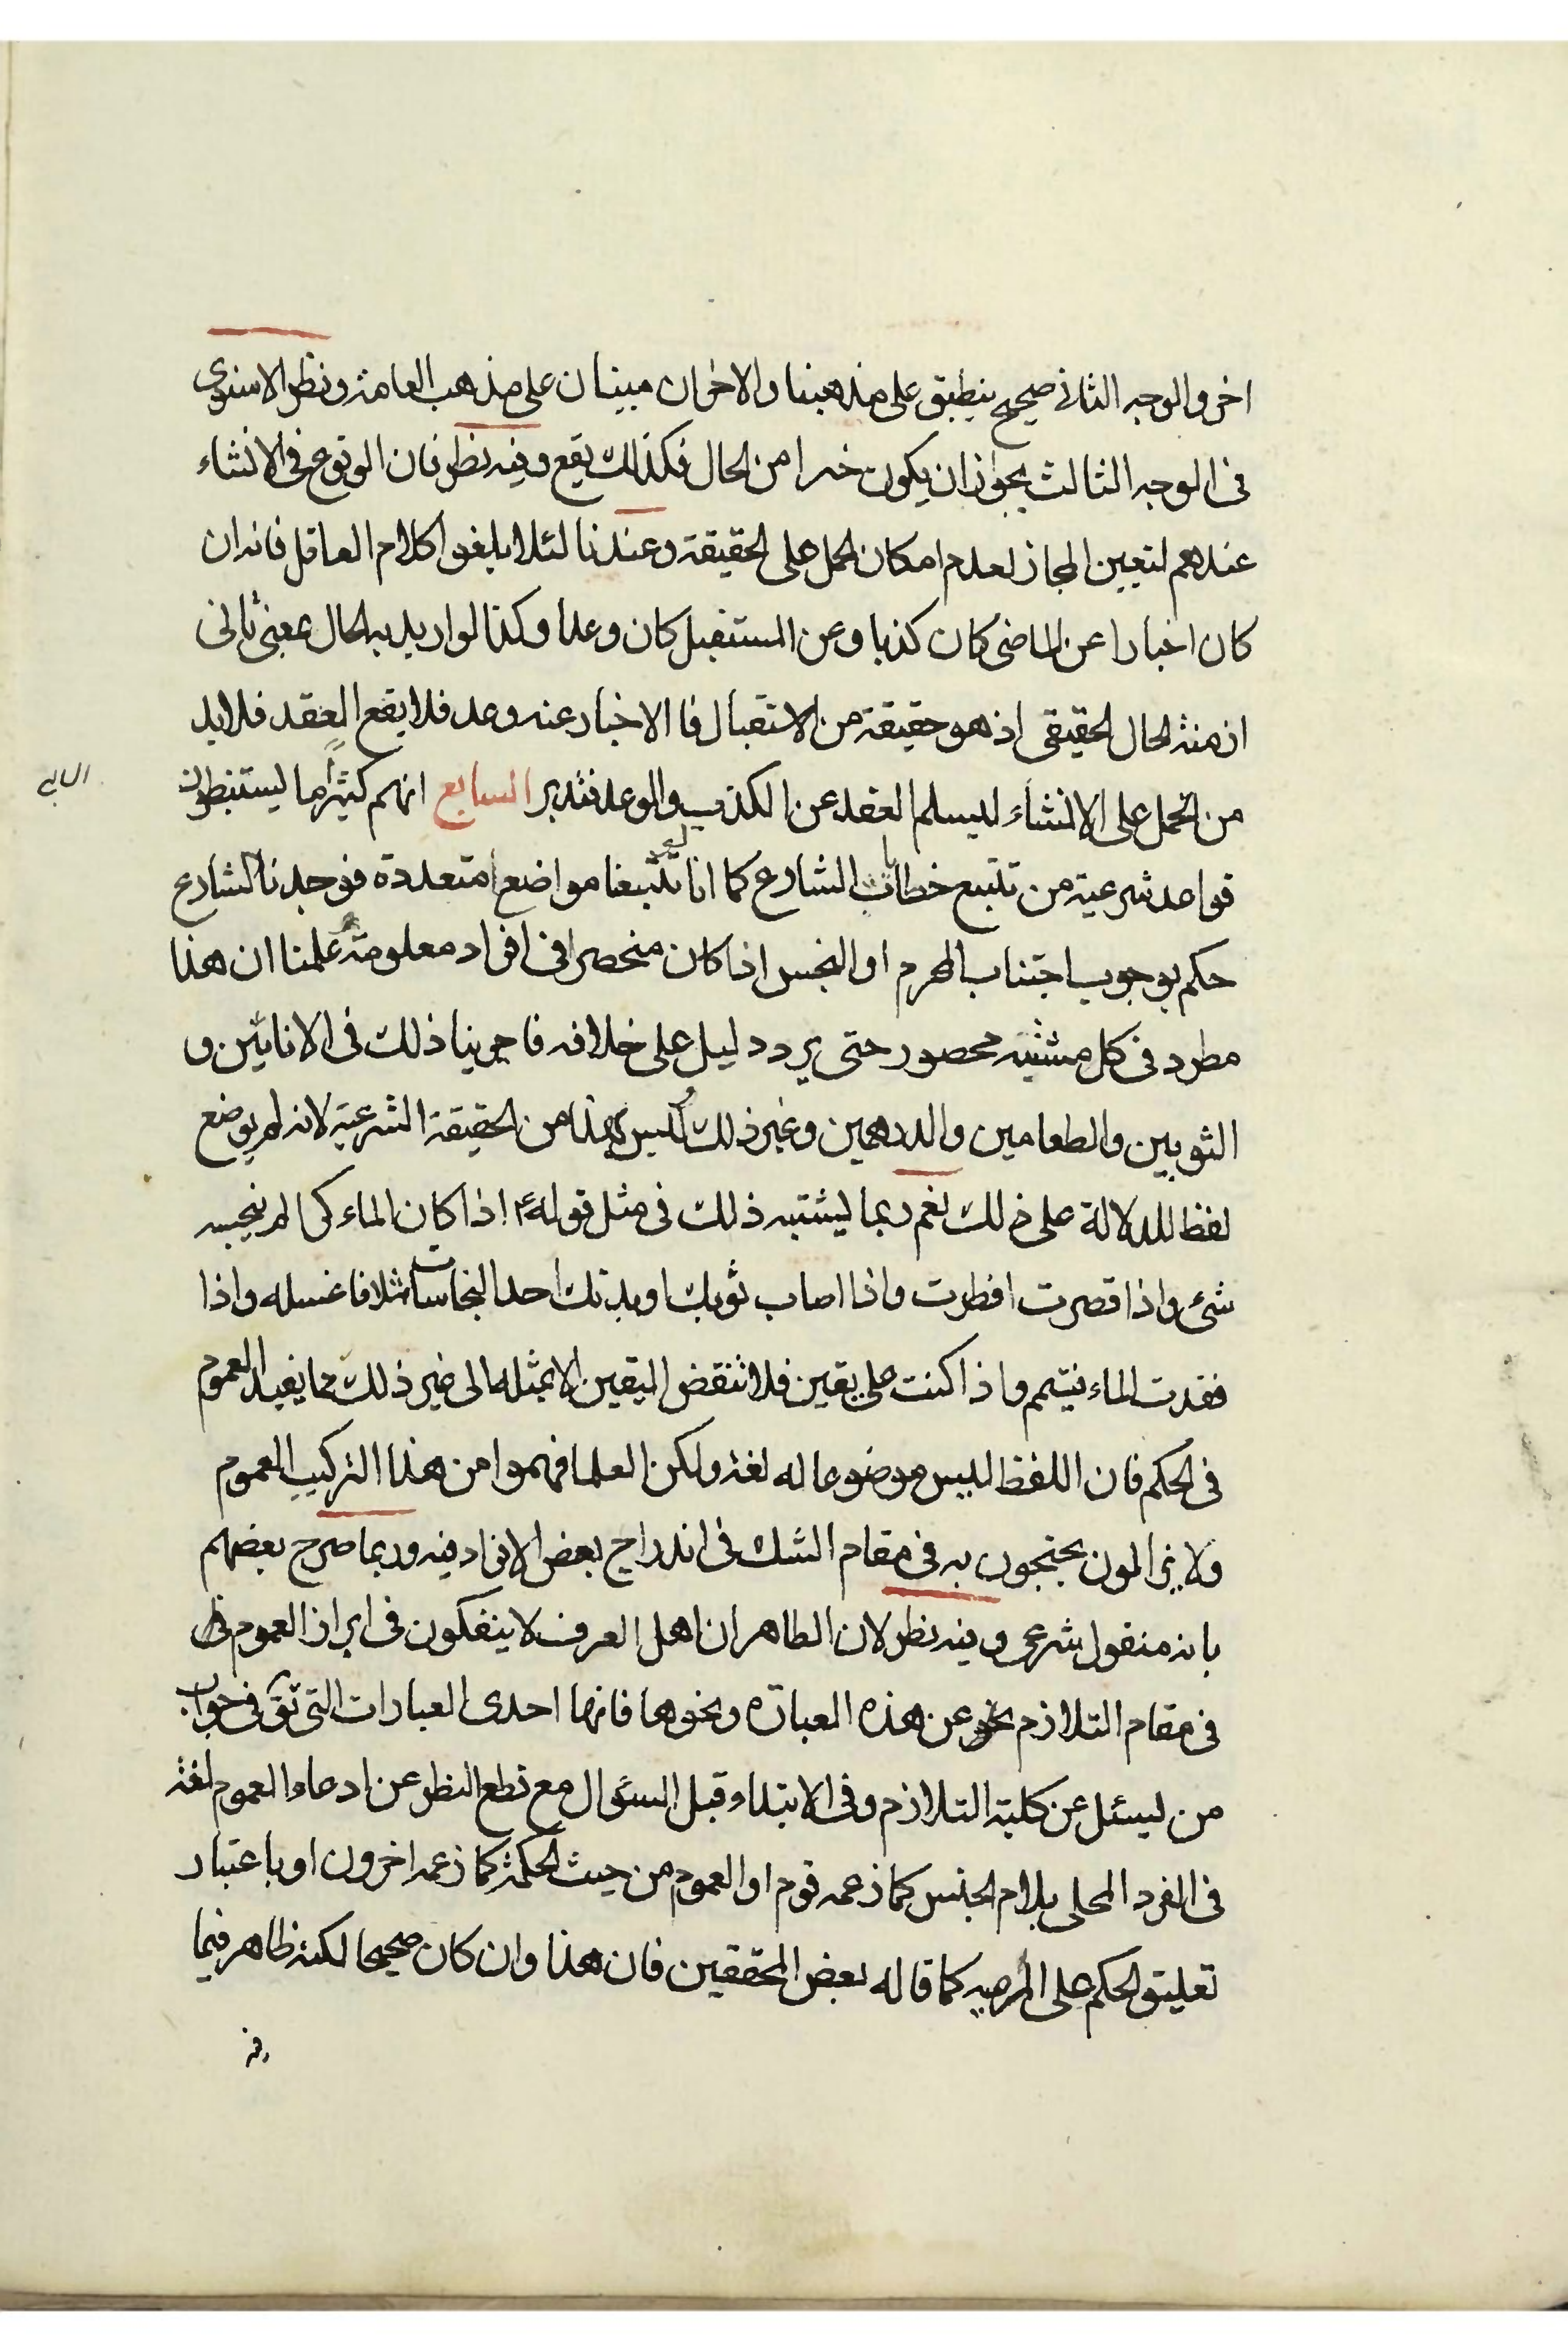 اخر والوجه الثاني صحيح ينطبق على مذهبنا والاخران مبنيان على مذهب العامة ونظر الاسنوى
فى الوجه الثالث بجواز ان يكون خبرا من الحال فكذلك يقع وفيه نظر فان الوقوع فى الانشاء
عندهم لتعيين المجاز لعدم امكان الحمل على الحقيقة وعندنا لئلا يلغوا كلام العاقل فانه ان
كان اخبارا عن الماضى كان كذبا وعن المستقبل كان وعدا وكذا لو اريد به الحال بمعنى ثانى
ازمنة الحال الحقيقى اذ هو حقيقة من الاستقبال فا الاخبار عنه وعد فلا يقع العقد فلا بد
من الحمل على الانشاء ليسلم العقد عن الكذب والوعد فتدبر السابع انهم كثيرا ما يستنبطون
السابع
قواعد شرعية من تتبع خطابات الشارع كما انا تتبعنا مواضع متعددة فوجدنا الشارع
حكم بوجوب اجتناب المحرم او النجس اذا كان منحصرا فى افراد معلومة علمنا ان هذا
مطرد فى كل مشتبه محصور حتى يرد دليل على خلافه فاجرينا ذلك فى الانائين و
الثوبين والطعامين والدرهمين وغير ذلك وليس هذا من الحقيقة الشرعية لانه لم يوضع
لفظ للدلالة على ذلك نعم ربما يشتبه ذلك فى مثل قوله ع اذا كان الماء كرا لم ينجسه
شئ واذا قصرت افطرت واذا اصاب ثوبك او بدنك احد النجاسات مثلا فاغسله واذا
فقدت الماء فتيمم واذا كنت على يقين فلا تنقض اليقين الا بمثله الى غير ذلك مما يفيد العموم
فى الحكم فان اللفظ ليس موضوعا له لغة ولكن العلما فهموا من هذا التركيب العموم
ولا يزالون يحتجون به فى مقام الشك فى اندراج بعض الافراد فيه وربما صرح بعضهم
بانه منقول شرعى وفيه نظر لان الظاهر ان اهل العرف لا ينفكون فى ابراز العموم
فى مقام التلازم عن هذه العبارة ونحوها فانها احدى العبارات التى تق فى جواب
من يسئل عن كلية التلازم وفى الابتداء وقبل السؤال مع قطع النظر عن ادعاء العموم لغة
فى المفرد المحلى بلام الجنس كما زعمه قوم او العموم من حيث الحكمة كما زعمه اخرون او باعتبار
تعليق الحكم على كما قاله بعض المحققين فان هذا وان كان صحيحا لكنه ظاهر فيما